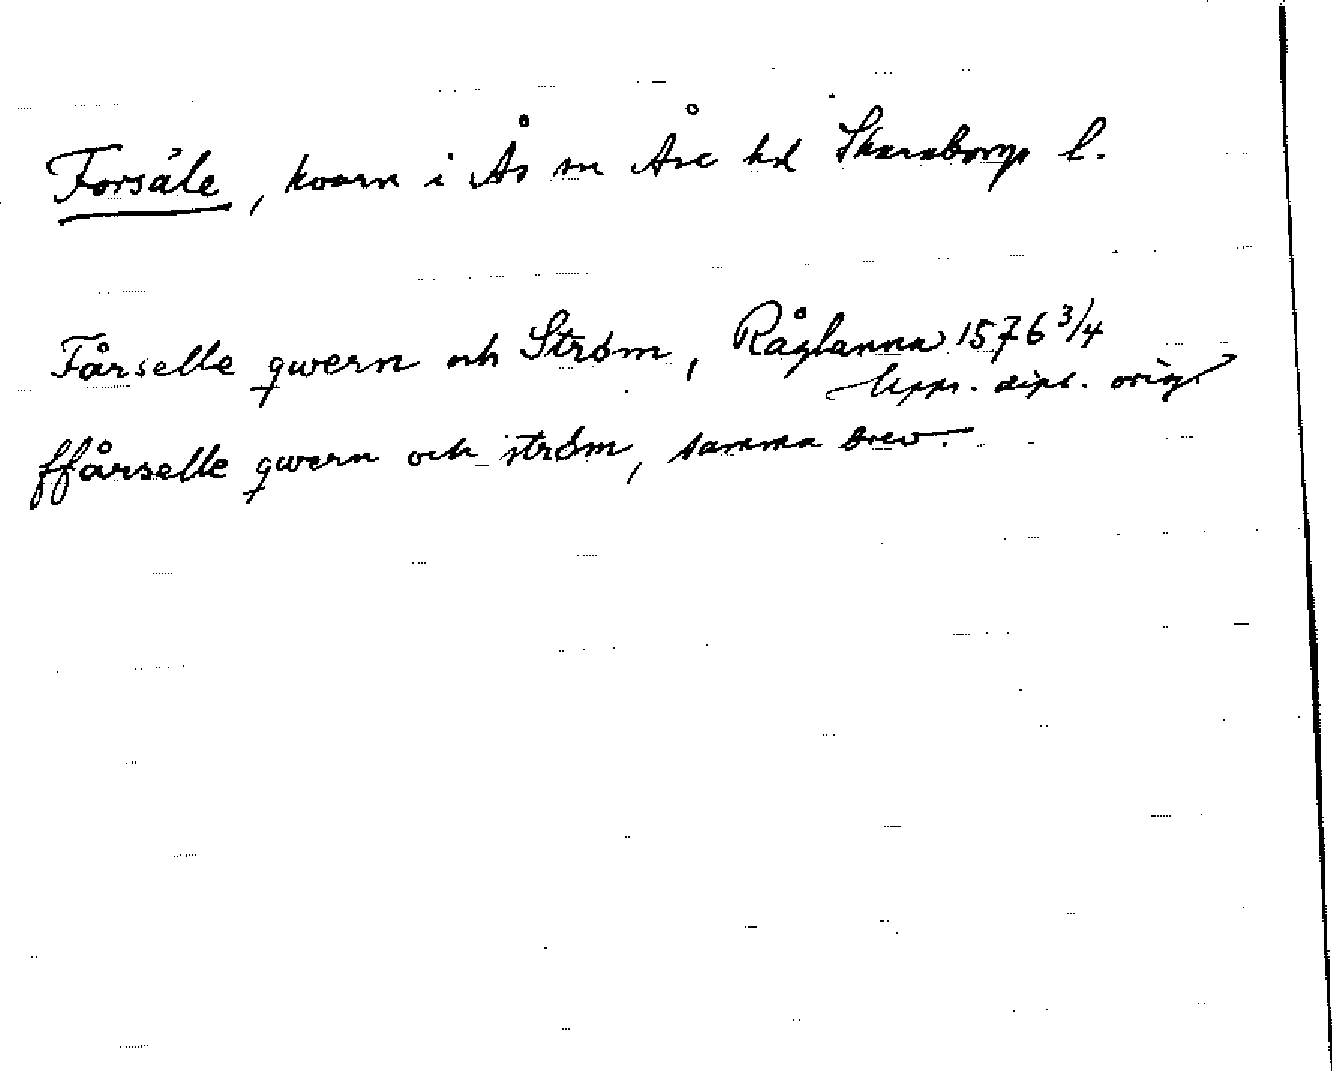 Forsåle, kvarn i Ås sn Åse hd Skaraborgs l.
Fårselle qwern och Ström, Råglanna 1576 3/4
Upps. dipl. orig.
ffårselle qwern och ström, samma brev.